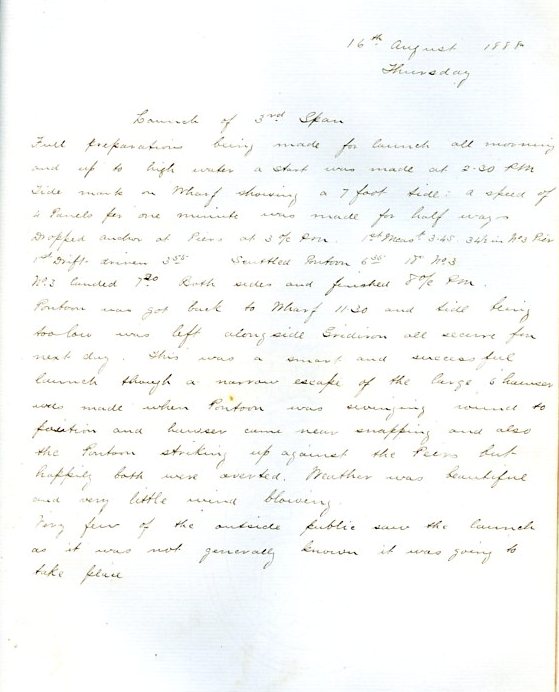 16th August 1888
Thursday
Launch of 3rd Span
Full preparations being made for launch all morning
and up to high water a start was made at 2.30 PM
Tide mark on Wharf showing a 7 foot tide: a speed of
4 Panels per one minute was made for half way
Dropped anchor at Piers at 3 o/c P.m. 1st 3.45 in No3 Pier
1st Drift driven 3 55 Scuttled Pontoon 6 55 No3
No3 landed 7 20 Both sides and finished 8 o/c P.M.
Pontoon was got back to Wharf 11.30 and tide being
too low was left alongside Gridiron all secure for
next day. This was a smart and successful
launch though a narrow escape of the large hawser
was made when Pontoon was swinging round to
position and hawser came near snapping and also
the Pontoon striking up against the Piers but
happily both were averted. Weather was beautiful
and very little wind blowing.
Very few of the outside public saw the launch
as it was not generally known it was going to
take place